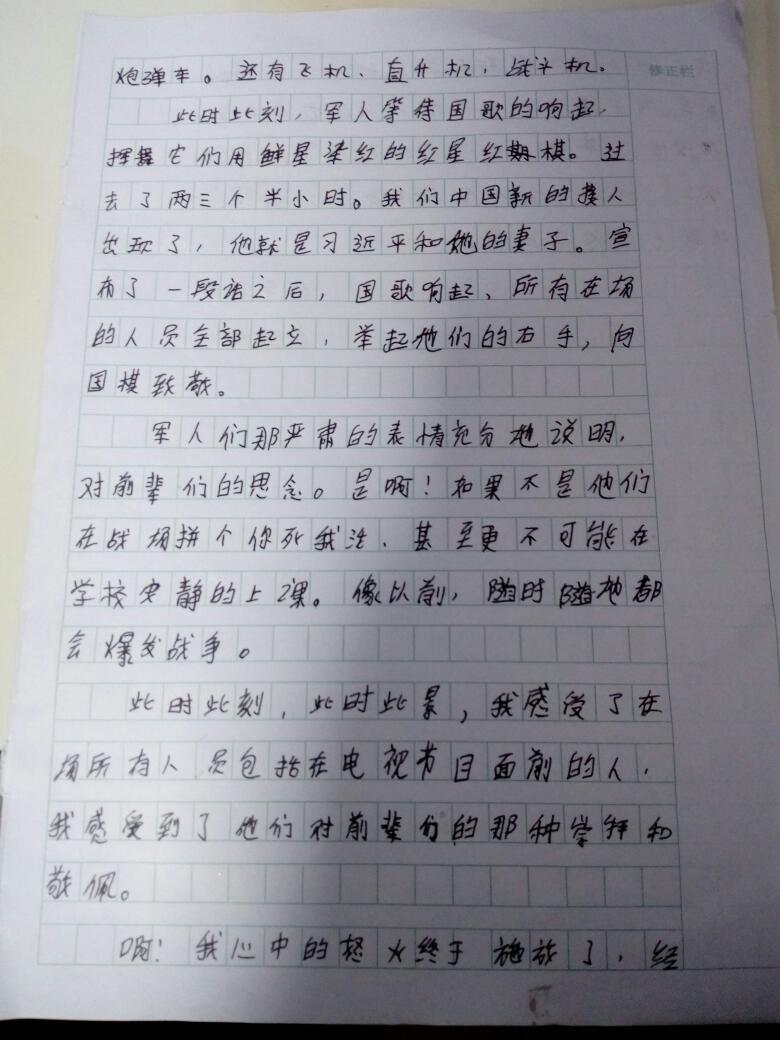 炮弹车。还有飞机、直升机，战斗机。
修正栏
此时此刻，军人等待国歌的响起，
挥舞它们用鲜星染红的红星红棋。过
去了两三个半小时。我们中国新的接人
出现了，他就是习近平和她的妻子。宣
布了一段话之后，国歌响起、所有在场
的人员全部起立，举起他们的右手，向
国棋致敬。
军人们那严肃的表情充分地说明，
对前辈们的思念。是啊！如果不是他们
在战场拼个你死我活、甚至更不可能在
学校安静的上课。像以前，随时随地都
会爆发战争。
此时此刻，此时此景，我感受了在
场所有人员包括在电视节目面前的人，
我感受到了他们对前辈们的那种崇拜和
敬佩。
啊！我心中的怒火终于施放了，经